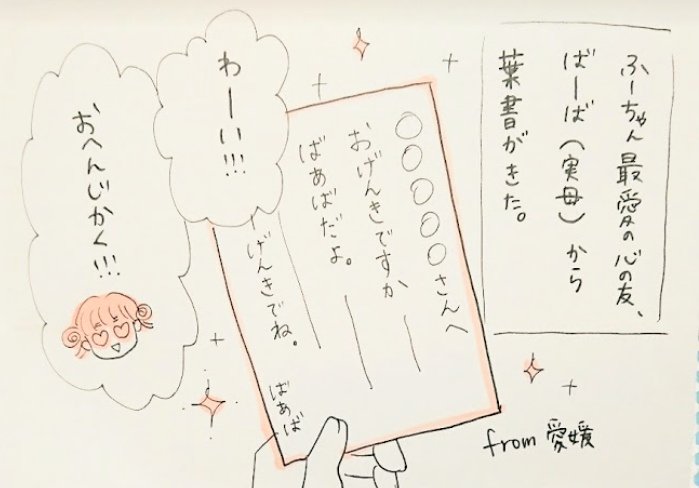 ふーちゃん最愛の心の友、
ばーば(実母)から
葉書がきた。
〇〇〇〇〇さんへ
おげんきですか
ばあばだよ。
げんきでね。
ばあば
from 愛媛
わーい!!!
おへんじかく!!!